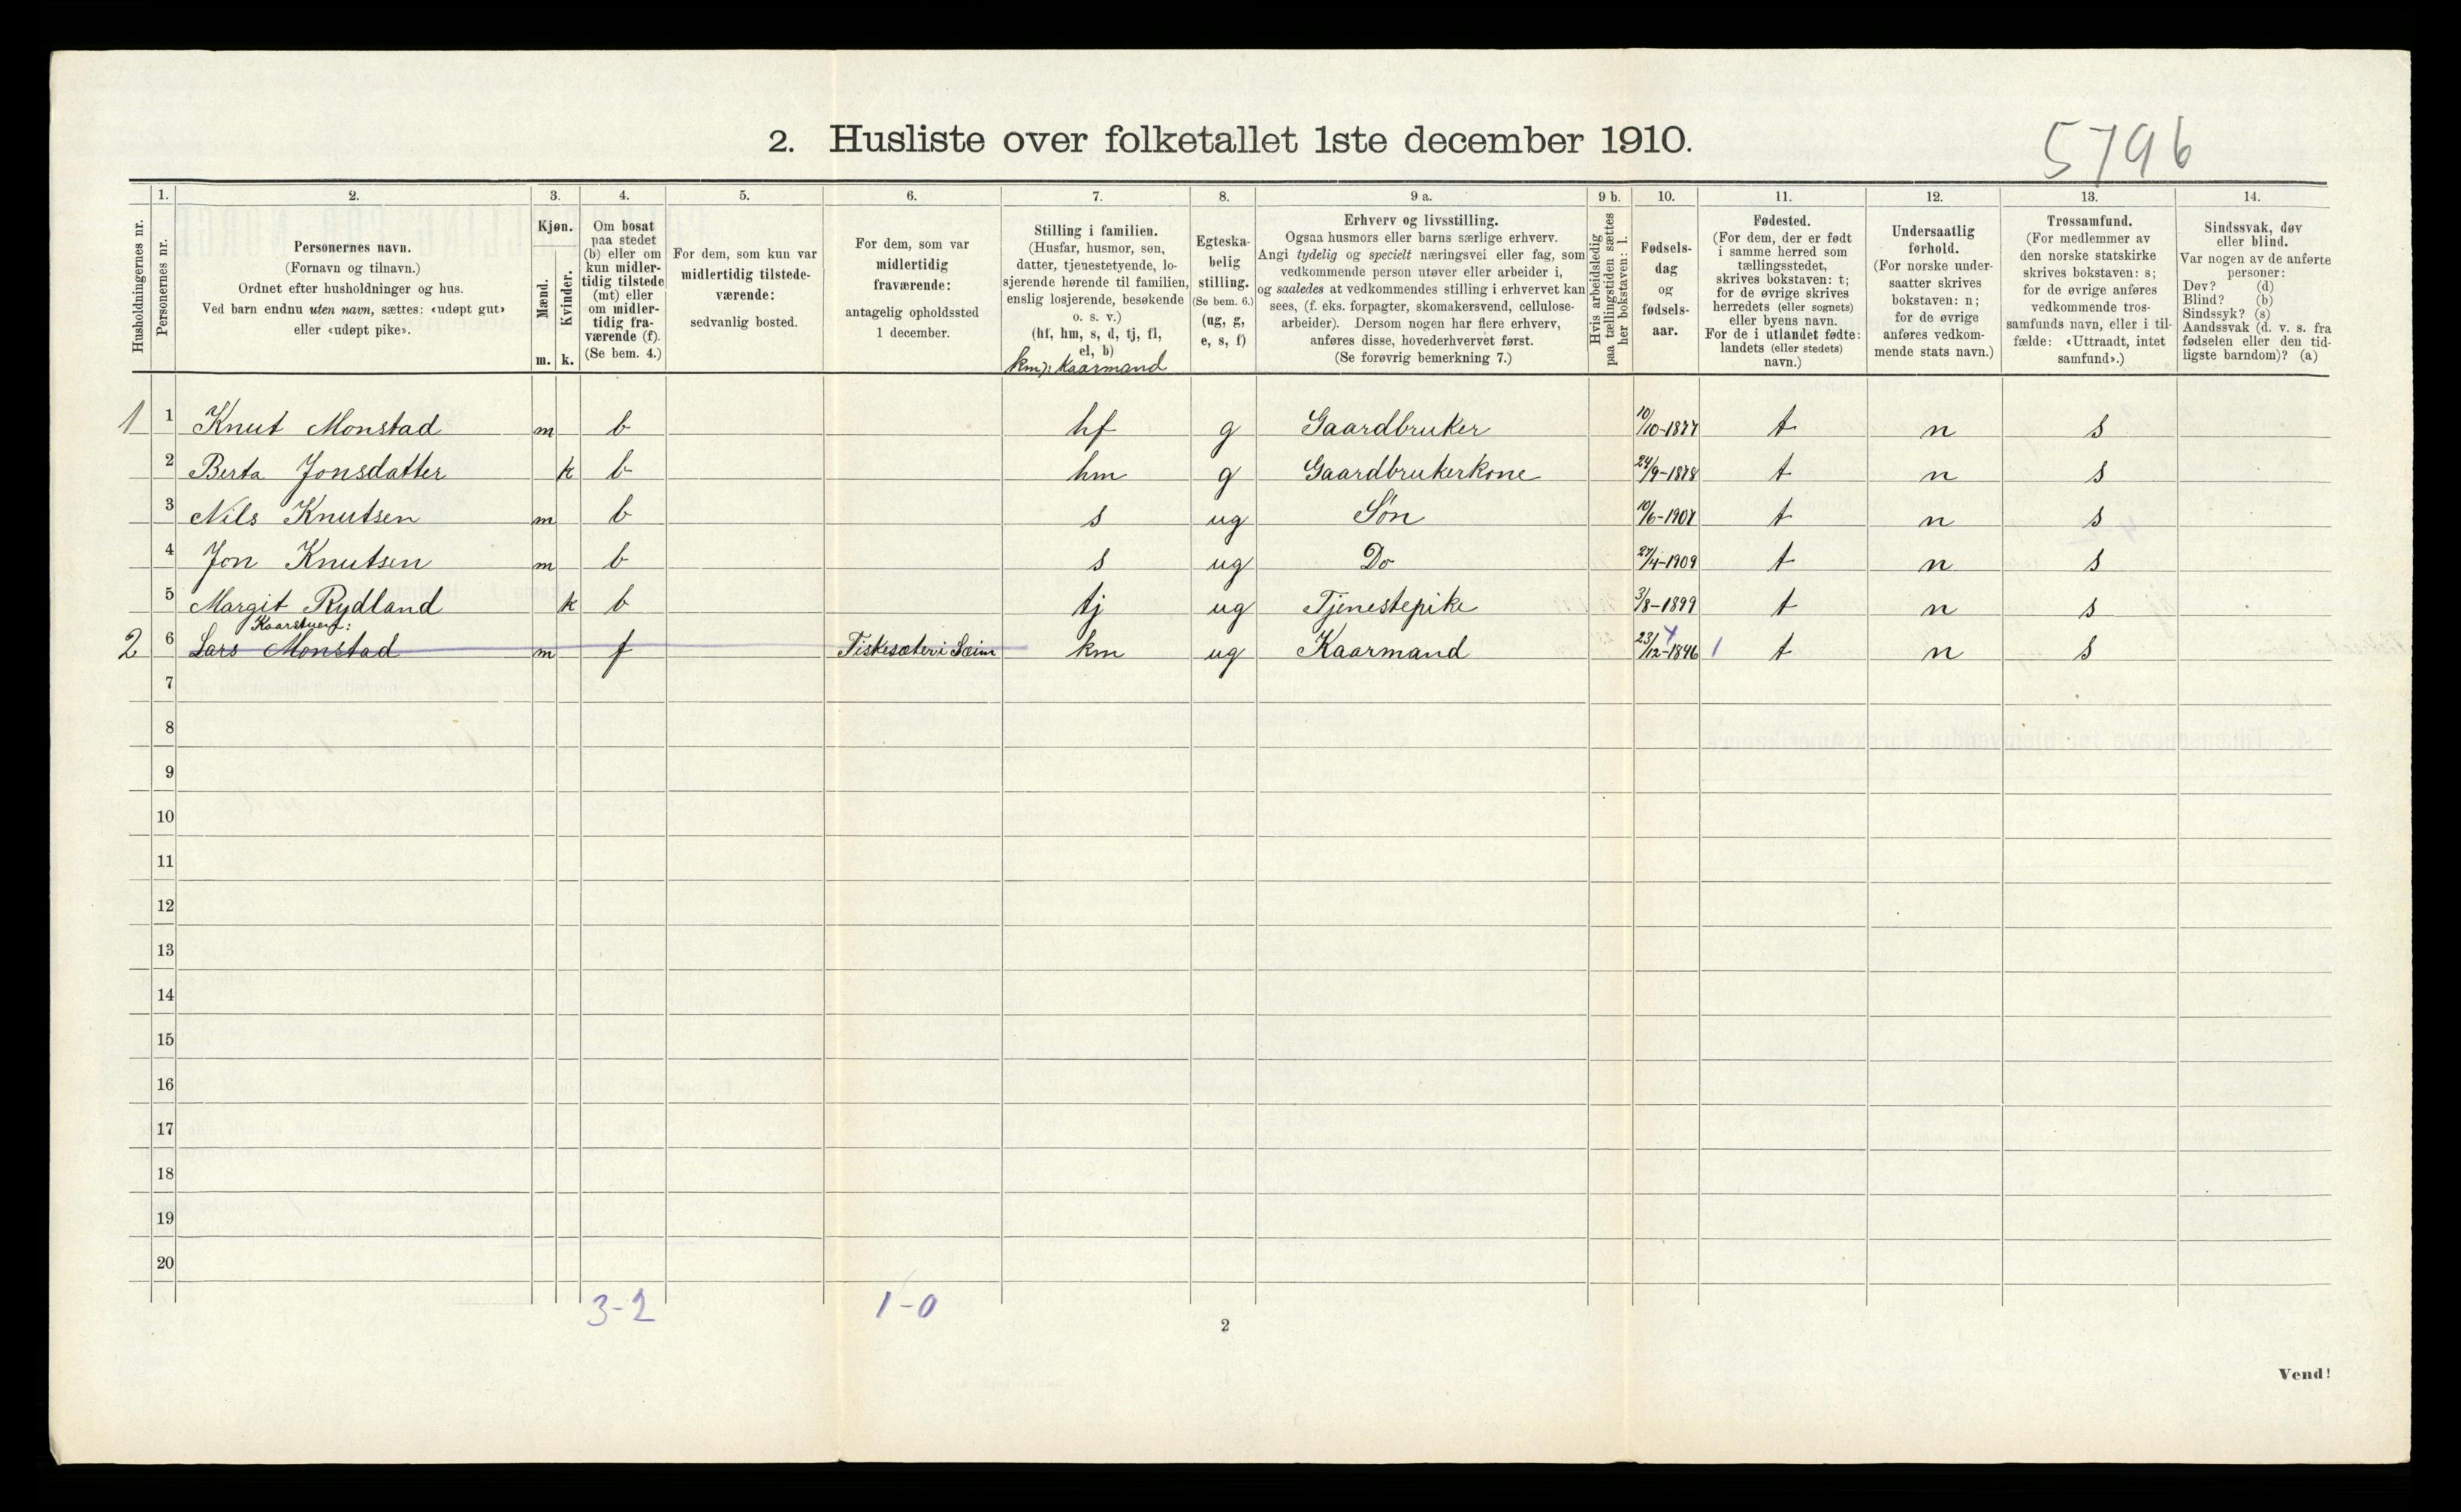 2. Husliste over folketallet 1ste december 1910.
5796
1. 2. 3. 4. 5. 6. 7. 8. 9 a. 9 b. 10. 11. 12. 13. 14.
Husholdningernes nr.
Personernes nr.
Personernes navn.
(Fornavn og tilnavn.)
Ordnet efter husholdninger og hus.
Ved barn endnu uten navn, sættes: «udøpt gut»
eller «udøpt pike».
Kjøn.
Mænd.
Kvinder.
m. k.
Om bosat
paa stedet
(b) eller om
kun midler-
tidig tilstede
(mt) eller
om midler-
tidig fra-
værende (f).
(Se bem. 4.)
For dem, som kun var
midlertidig tilstede-
værende:
sedvanlig bosted.
For dem, som var
midlertidig
fraværende:
antagelig opholdssted
1 december.
Stilling i familien.
(Husfar, husmor, søn,
datter, tjenestetyende, lo-
sjerende hørende til familien,
enslig losjerende, besøkende
o. s. v.)
(hf, hm, s, d, tj, fl,
el, b)
km): Kaarmand
Egteska-
belig
stilling.
(Se bem. 6.)
(ug, g,
e, s, f)
Erhverv og livsstilling.
Ogsaa husmors eller barns særlige erhverv.
Angi tydelig og specielt næringsvei eller fag, som
vedkommende person utøver eller arbeider i,
og saaledes at vedkommendes stilling i erhvervet kan
sees, (f. eks. forpagter, skomakersvend, cellulose-
arbeider). Dersom nogen har flere erhverv,
anføres disse, hovederhvervet først.
(Se forøvrig bemerkning 7.)
Hvis arbeidsledig
paa tællingstiden sættes
her bokstaven: l.
Fødsels-
dag
og
fødsels-
aar.
Fødested.
(For dem, der er født
i samme herred som
tællingsstedet,
skrives bokstaven: t;
for de øvrige skrives
herredets (eller sognets)
eller byens navn.
For de i utlandet fødte:
landets (eller stedets)
navn.)
Undersaatlig
forhold.
(For norske under-
saatter skrives
bokstaven: n;
for de øvrige
anføres vedkom-
mende stats navn.)
Trossamfund.
(For medlemmer av
den norske statskirke
skrives bokstaven: s;
for de øvrige anføres
vedkommende tros-
samfunds navn, eller i til-
fælde: «Uttraadt, intet
samfund».)
Sindssvak, døv
eller blind.
Var nogen av de anførte
personer:
Døv? (d)
Blind? (b)
Sindssyk? (s)
Aandssvak (d. v. s. fra
fødselen eller den tid-
ligste barndom)? (a)
1 1 Knut Monstad m b hf g Gaardbruker 10/10-1877 t n s
2 Berta Jonsdatter k b hm g Gaardbrukerkone 24/9-1878 t n s
3 Nils Knutsen m b s ug Søn 10/6-1907 t n s
4 Jon Knutsen m b s ug Do 27/4-1909 t n s
5 Margit Rydland k b tj ug Tjenestepike 3/8-1899 t n s
Kaarstuen:
2 6 Lars Monstad m f Fiskesæter i Sæim km ug Kaarmand 23/12-1846 1 t n s
7
8
9
10
11
12
13
14
15
16
17
18
19
20
3-2 1-0
2
Vend!